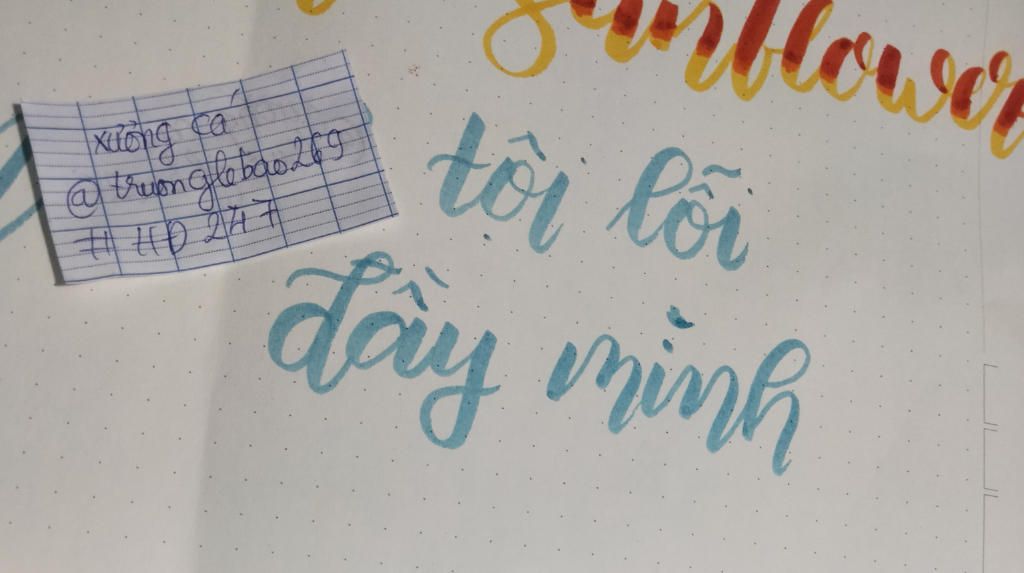 sunflower
xưởng cá
@truonglebao269
# HD 247
tội lỗi
đầy mình